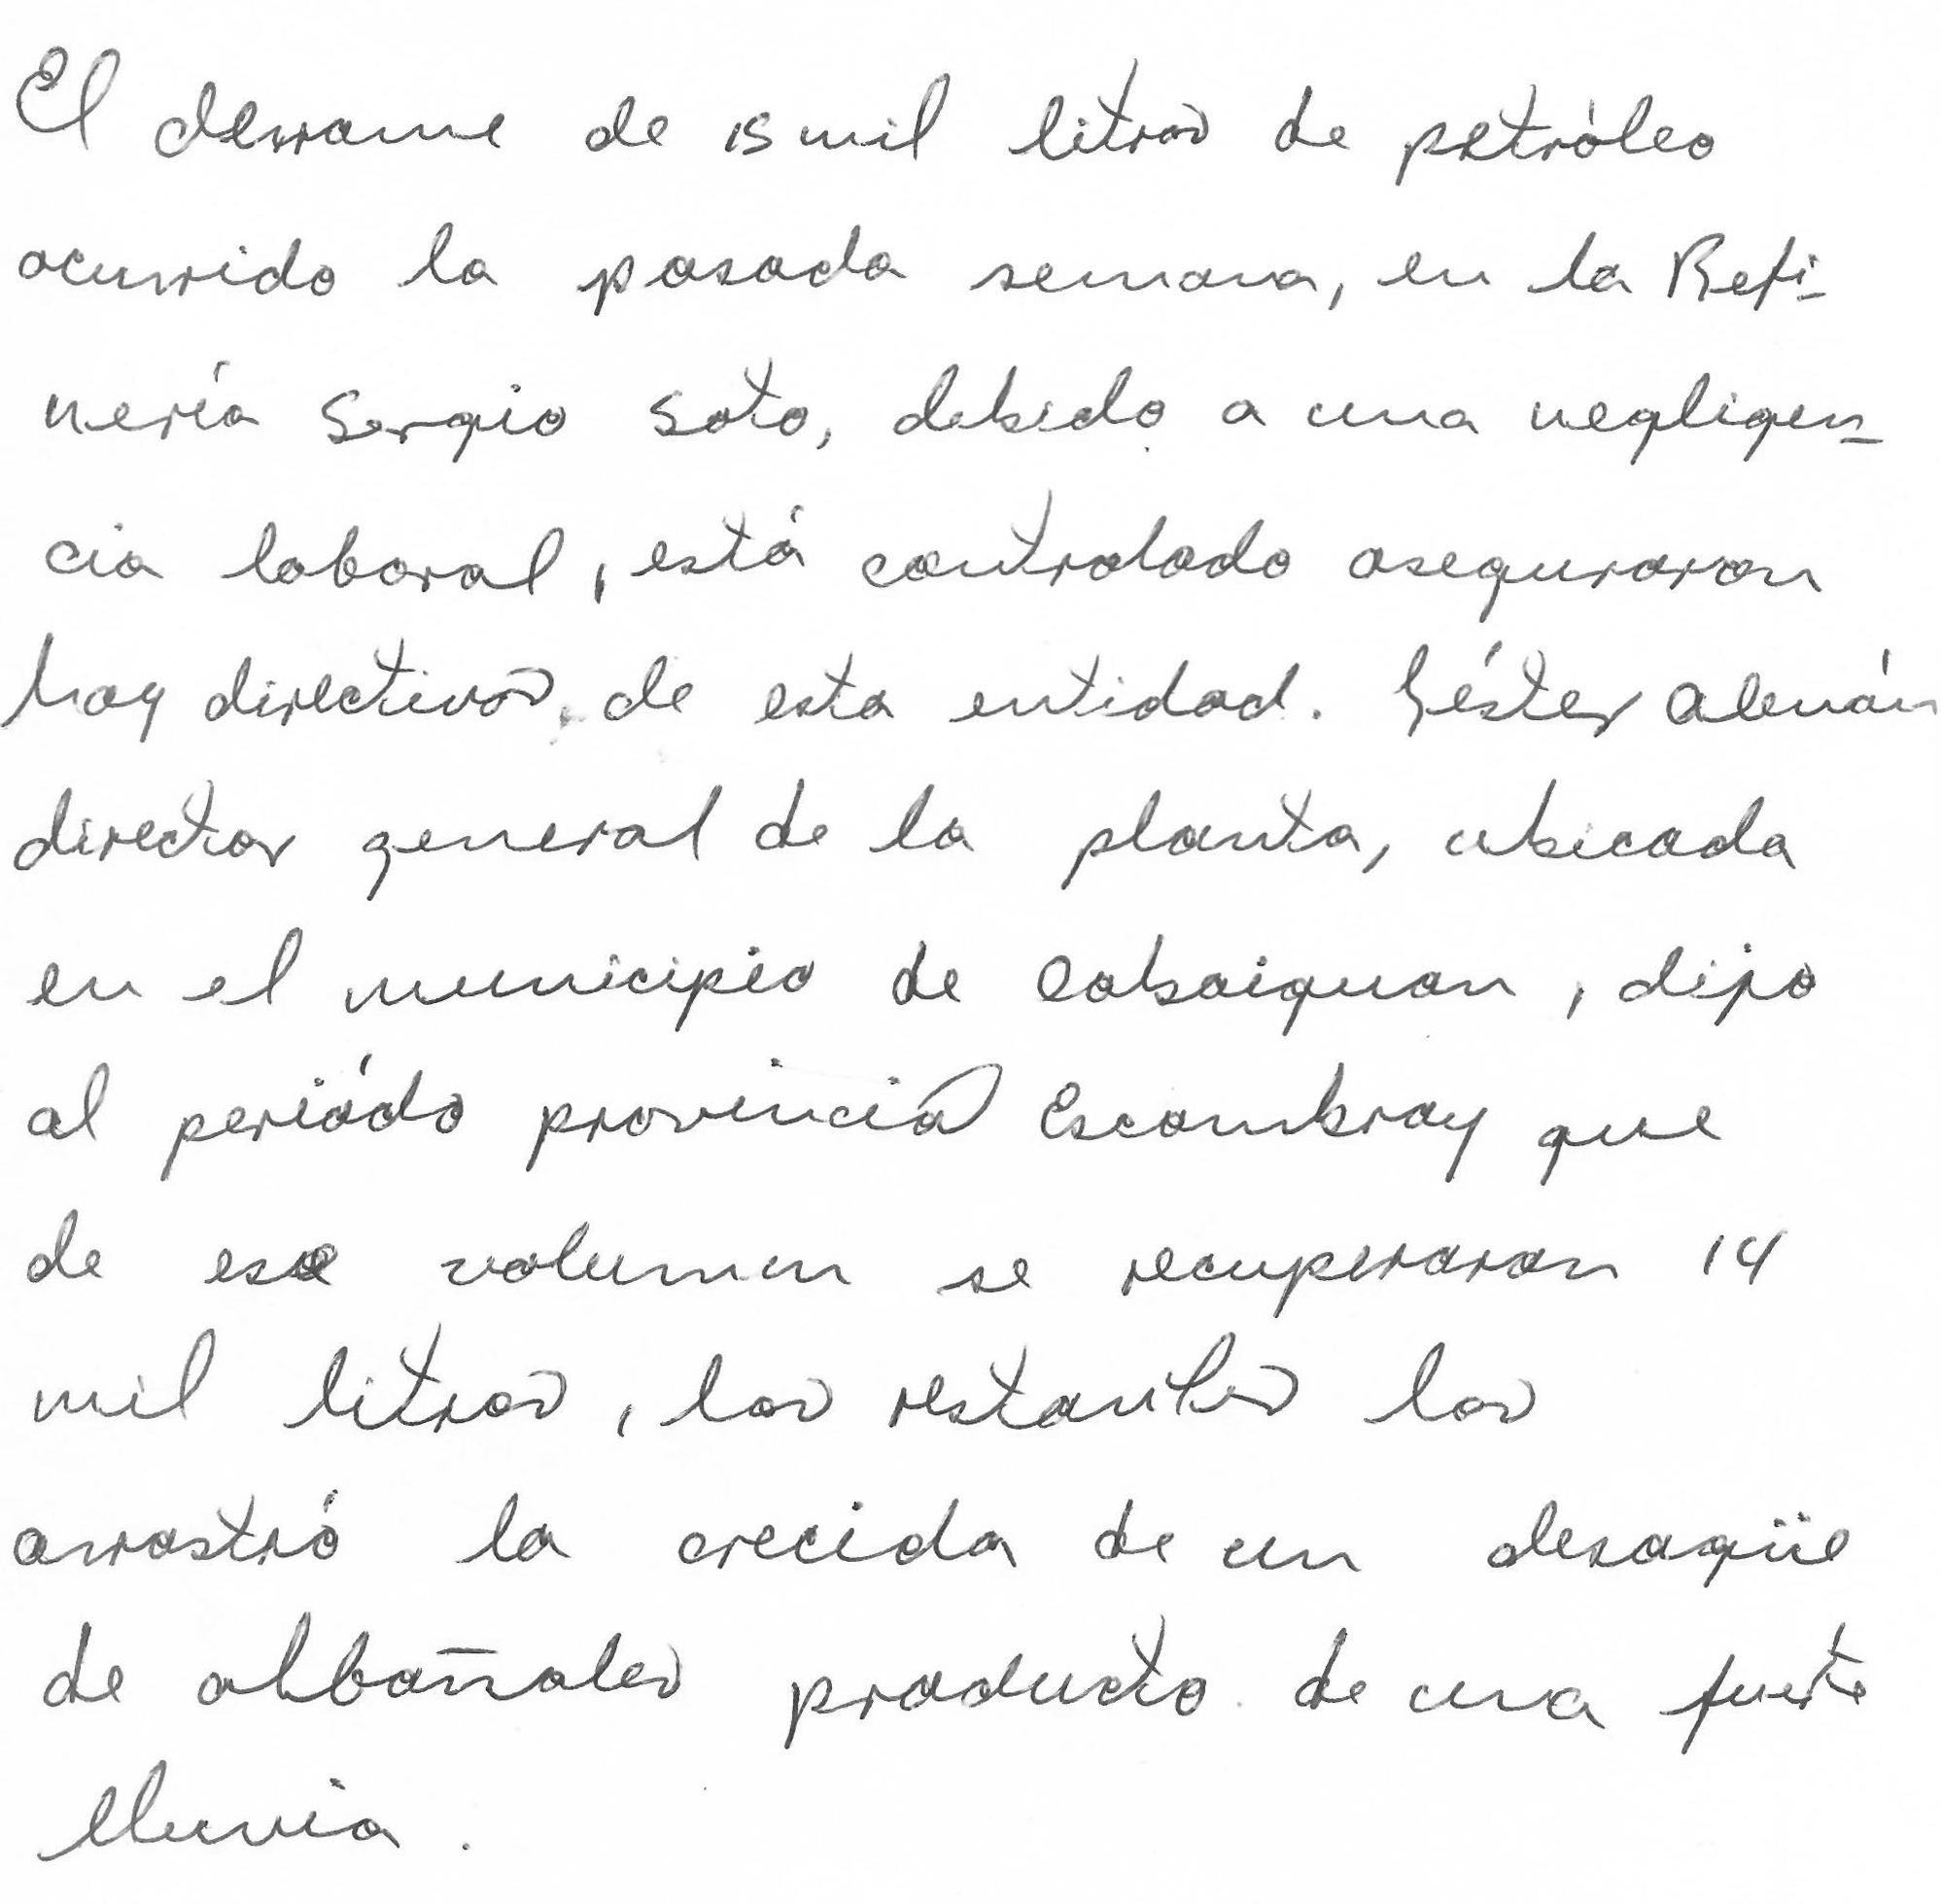 El derrame de 15 mil litros de petróleo
ocurrido la pasada semana, en la Refi-
nería Sergio Soto, debido a una negligen-
cia laboral, está controlado aseguraron
hoy directivos de esta entidad. Géster Alemán
director general de la planta, ubicada
en el municipio de Cabaiguan, dijo
al periódo provincial Escambray que
de ese volumen se recuperaron 14
mil litros, los restantes los
arrastró la crecida de un desagüe
de albañales producto de una fuerte
lluvia.